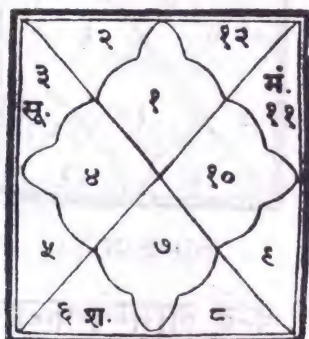 २ १२
३ सू. १ मं. ११
४ १०
५ ७ ९
६ श. ८